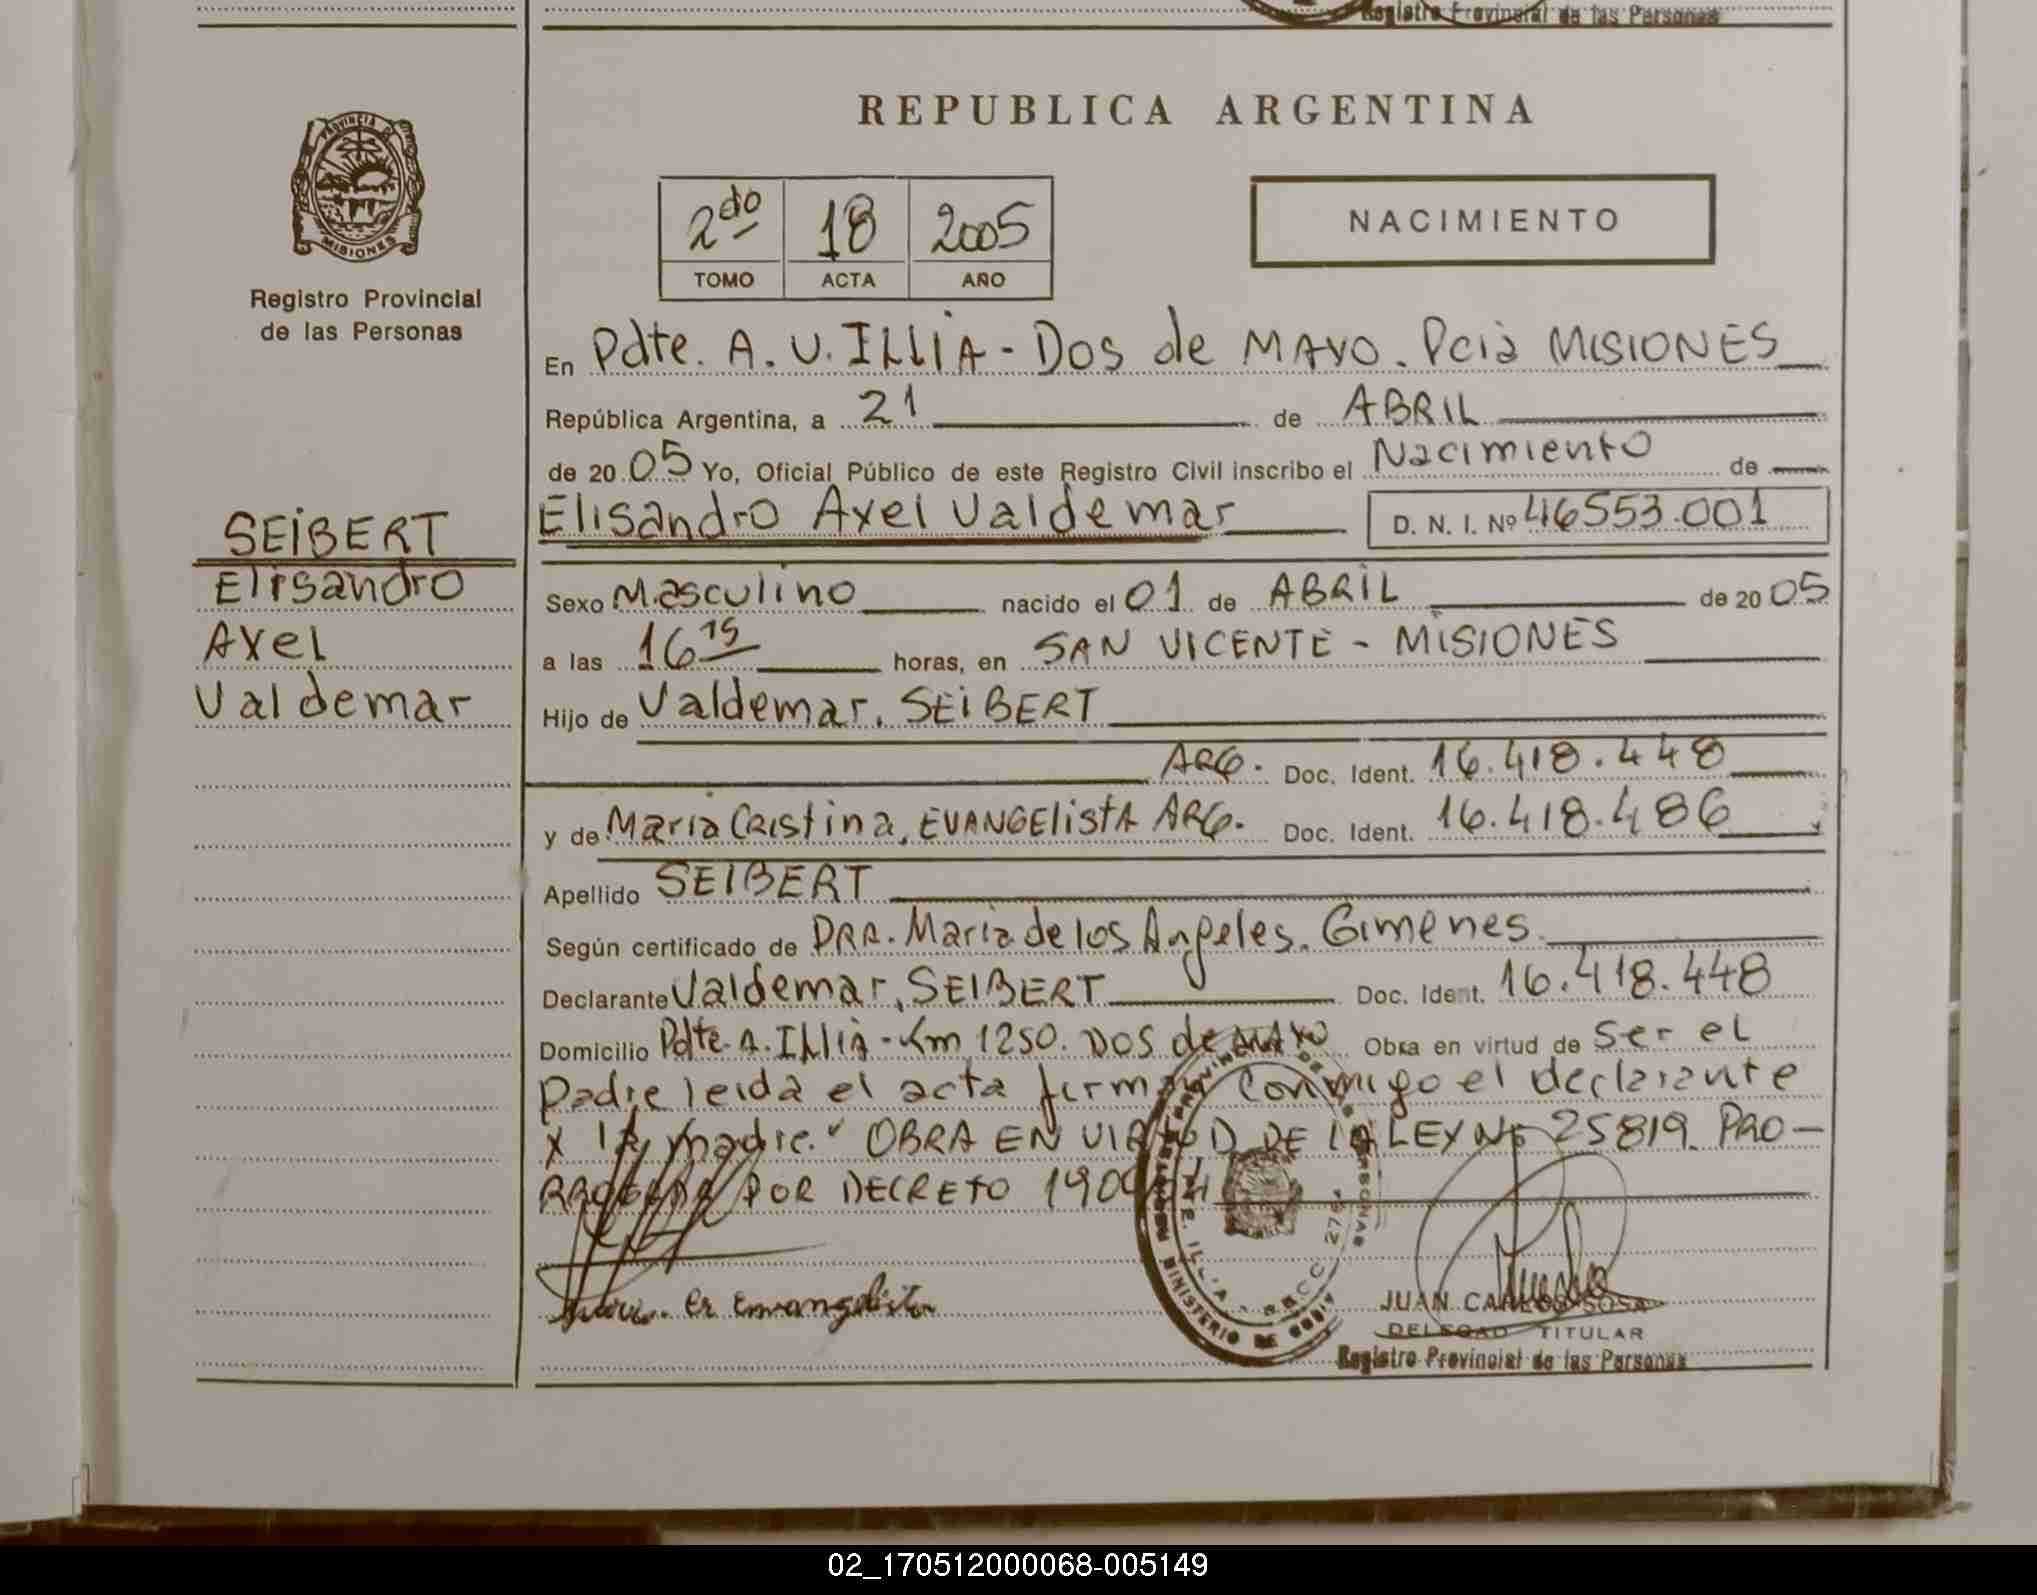 Registro Provincial de las Personas
PROVINCIA DE
MISIONES
Registro Provincial
de las Personas
SEIBERT
Elisandro
Axel
Valdemar
REPUBLICA ARGENTINA
2do 18 2005
TOMO ACTA AÑO
NACIMIENTO
En Pdte. A. U. ILLIA - DOS de MAYO. Pcia MISIONES
República Argentina, a 21 de ABRIL
de 20 05 Yo, Oficial Público de este Registro Civil inscribo el Nacimiento de
Elisandro Axel Valdemar D. N. I. Nº 46553.001
Sexo Masculino nacido el 01 de ABRIL de 20 05
a las 16 15 horas, en SAN VICENTE - MISIONES
Hijo de Valdemar, SEIBERT
ARG. Doc. Ident. 16.418.448
y de Maria Cristina, EVANGElistA ARG. Doc. Ident. 16.418.486
Apellido SEIBERT
Según certificado de DRA. Maria de los Angeles. Gimenes
Declarante Valdemar, SEIBERT Doc. Ident. 16.418.448
Domicilio Pdte. A. ILLIA - Km 1250. DOS de MAYO Obra en virtud de Ser el
padre leida el acta firman conmigo el declarante
y la madre." OBRA EN VIRTUD DE LA LEY Nº 25819. PRO-
RROGADA POR DECRETO
Evangelista
JUAN CARLOS SOSA
DELEGAD TITULAR
Registro Provincial de las Personas
02_170512000068-005149